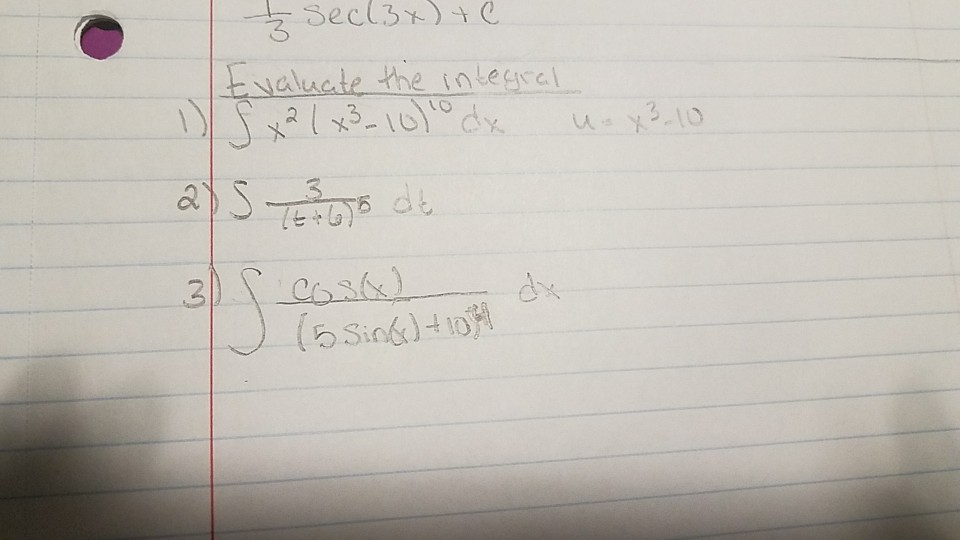 1/3 sec(3x) + C
Evaluate the integral
1) ∫ x² (x³-10)¹⁰ dx u = x³-10
2) ∫ 3/(t+6)⁵ dt
3) ∫ cos(x)/(5 sin(x) + 10) dx